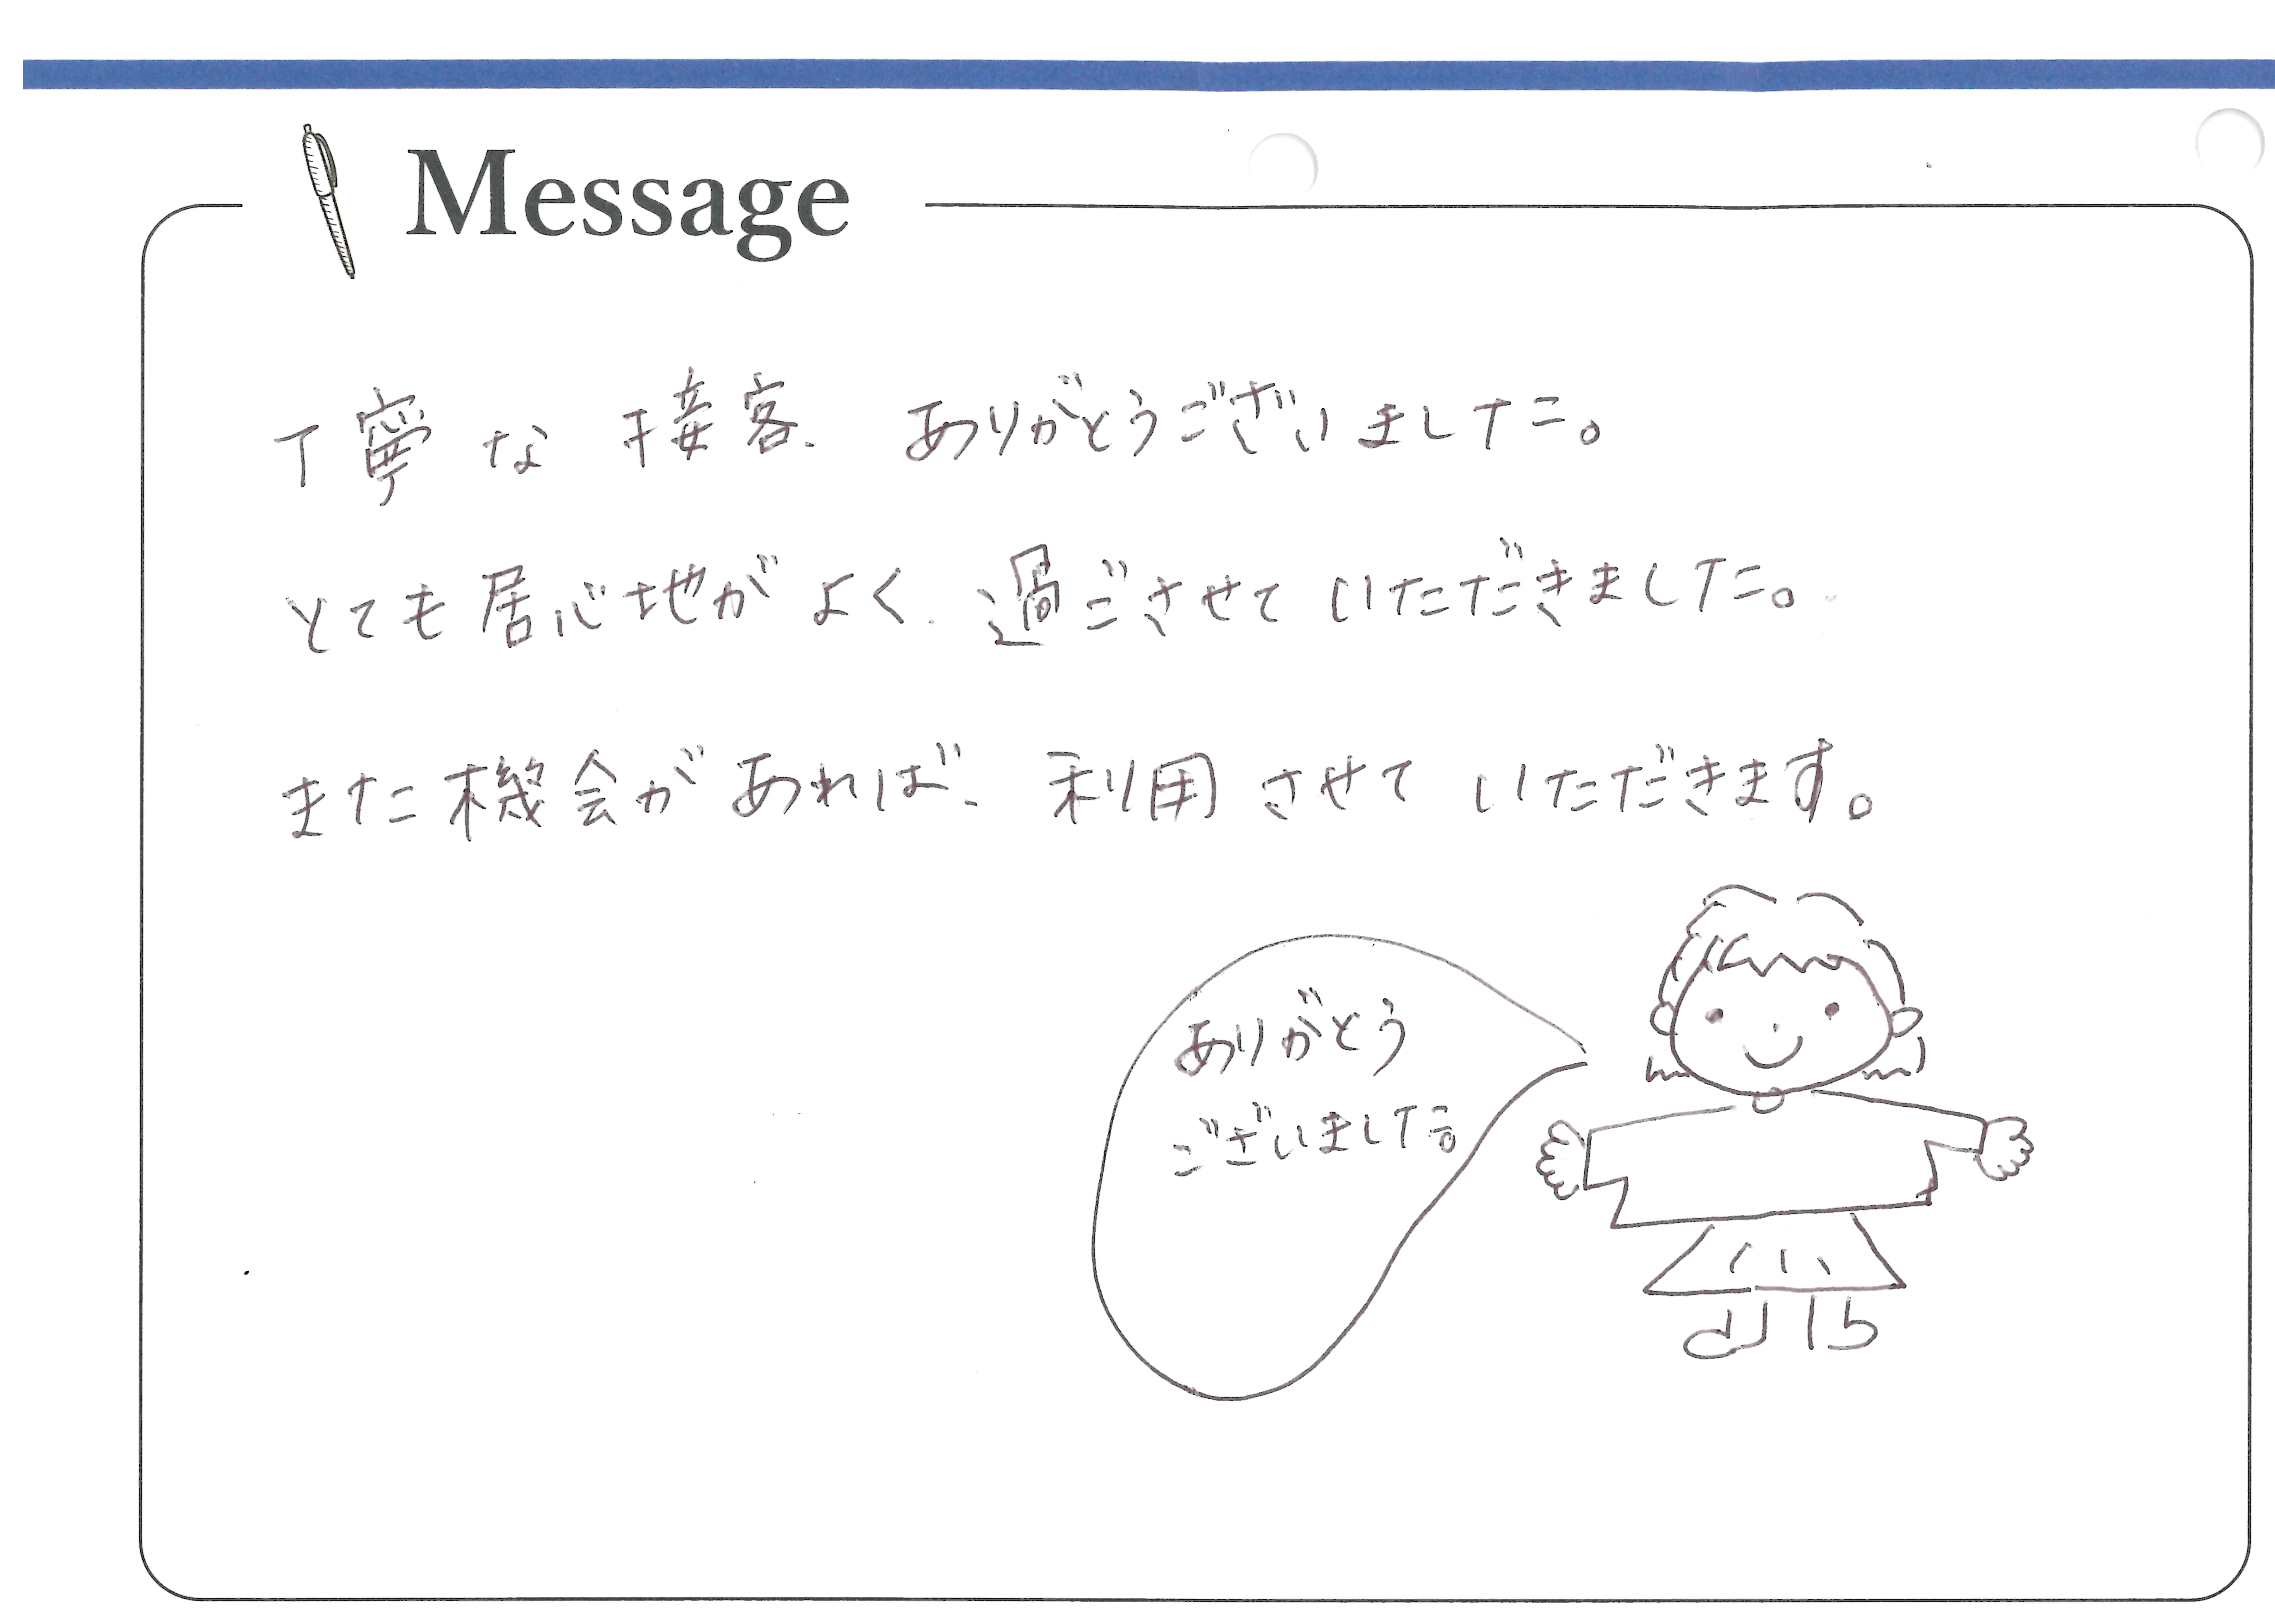 Message
丁寧な接客、ありがとうございました。
とても居心地がよく、過ごさせていただきました。
また機会があれば、利用させていただきます。
ありがとう
ございました。